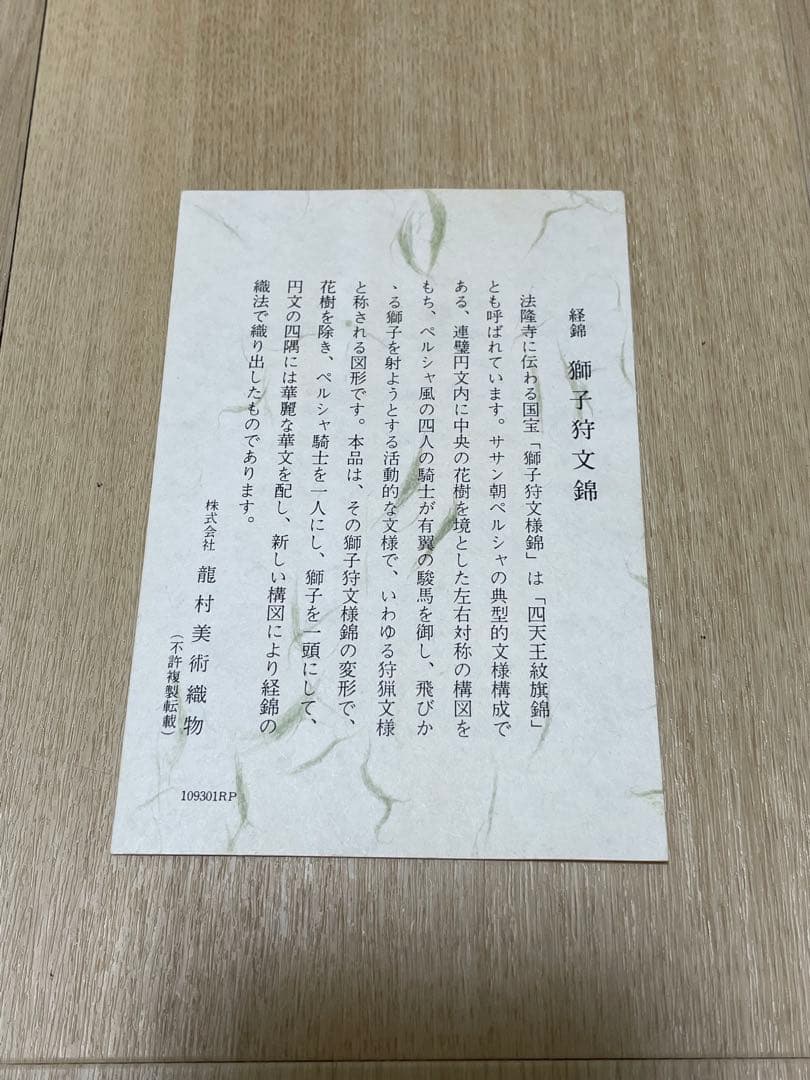 経錦 獅子狩文錦
法隆寺に伝わる国宝「獅子狩文様錦」は「四天王紋旗錦」
とも呼ばれています。ササン朝ペルシャの典型的文様構成で
ある、連璧円文内に中央の花樹を境とした左右対称の構図を
もち、ペルシャ風の四人の騎士が有翼の駿馬を御し、飛びか
ゝる獅子を射ようとする活動的な文様で、いわゆる狩猟文様
と称される図形です。本品は、その獅子狩文様錦の変形で、
花樹を除き、ペルシャ騎士を一人にし、獅子を一頭にして、
円文の四隅には華麗な華文を配し、新しい構図により経錦の
織法で織り出したものであります。
株式会社 龍村美術織物
(不許複製転載)
109301RP